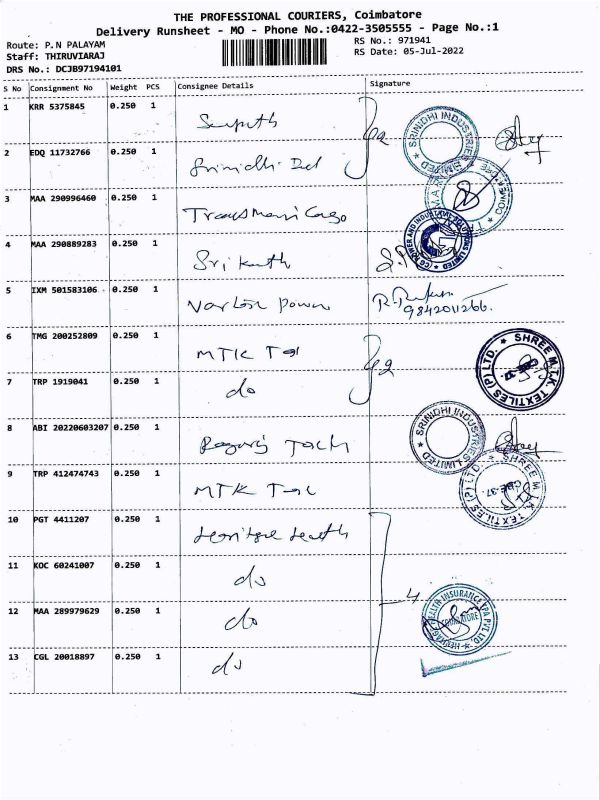 THE PROFESSIONAL COURIERS, Coimbatore
Delivery Runsheet - MO - Phone No.:0422-3505555 - Page No.:1
Route: P.N PALAYAM
RS No.: 971941
Staff: THIRUVIARAJ
RS Date: 05-Jul-2022
DRS No.: DCJB97194101
S No Consignment No Weight PCS Consignee Details Signature
1 KRR 5375845 0.250 1
SRINIDHI INDUSTRIES LIMITED
2 EDQ 11732766 0.250 1 Srinidhi Ind
3 MAA 290996460 0.250 1 Transmani Cargo
4 MAA 290889283 0.250 1 Srikanth
CG POWER AND INDUSTRIAL SOLUTIONS LIMITED
5 IXM 501583106 0.250 1 Power
9842011266.
6 TMG 200252809 0.250 1 MTK Tex
SHREE M.T.K. TEXTILES (P) LTD.
7 TRP 1919041 0.250 1 do
8 ABI 20220603207 0.250 1
SRINIDHI INDUSTRIES LIMITED
9 TRP 412474743 0.250 1 MTK Tex
SHREE M.T.K. TEXTILES (P) LTD. CBE-37.
10 PGT 4411207 0.250 1 Heritage Health
11 KOC 60241007 0.250 1 do
4
12 MAA 289979629 0.250 1 do
HERITAGE HEALTH INSURANCE TPA PVT LTD COIMBATORE
13 CGL 20018897 0.250 1 do